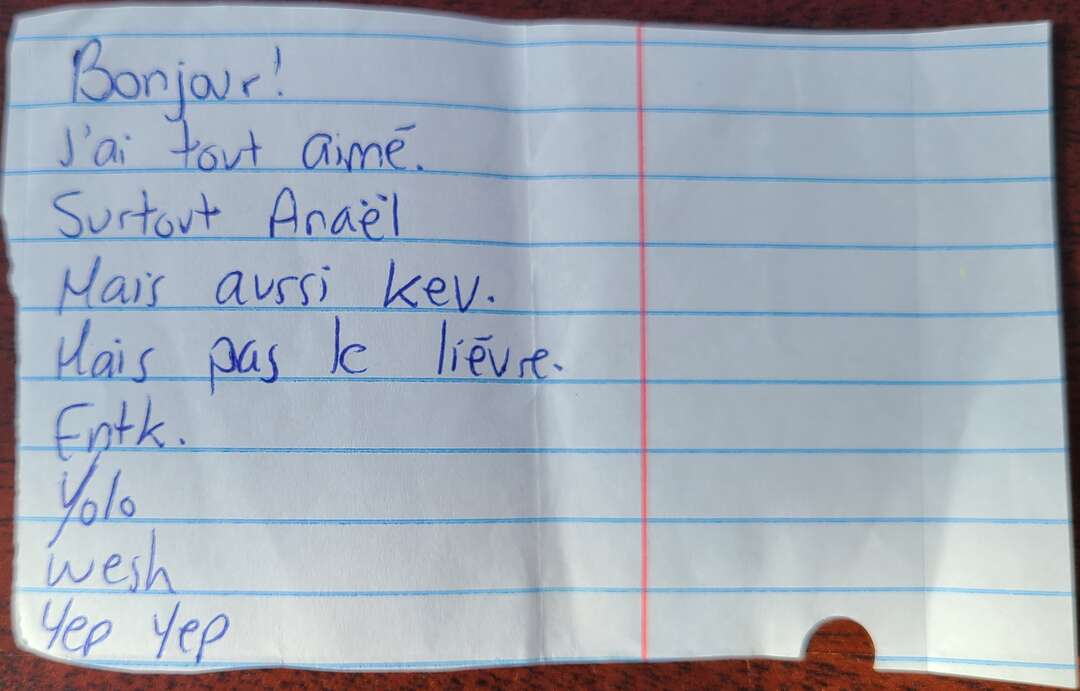 Bonjour!
J'ai tout aimé.
Surtout Anaël
Mais aussi kev.
Mais pas le lièvre.
Entk.
Yolo
wesh
Yep Yep